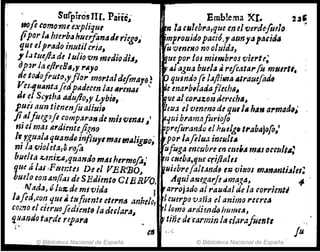 Suspiros II. Parte,
nose como me explique
si por la hierba huerfana de riego,
que el prado inutil cria,
y la tuesta de Iulio vn medio dia,
o por la estrella, y rayo
de todo fruto, y flor mortal desmayo?
de el Scytha adusto, y Lybio,
pues aun tienen su aliuio
si al fuego se comparan de mis venas;
ni el mas ardiente signo
le yguala quando influye mas maligno;
ni la violeta, ò rosa
buelta ceniza, quando mas hermosa,
que á las Fuentes De el VERBO,
buelo con ansias de SEdiento CIERVO.
Nada, ó luz de mi vida
la sed, con que à tu fuente eterna anhelo,
como el cieruo sediento la declara,
quando tarde repara
en
Emblema XI.
en la culebra, que en el verde suelo
improuido pació, y aun ya pacida
su veneno no oluida,
que por los miembros vierte;
al agua buela à rescatar su muerte,
O quando se lastima atrauesado
de enarbolada flecha,
que al corazon derecha,
lleua el veneno de que la han armado;
aqui brama furioso
apresurando el huelgo trabajoso,
por la fatal inculta
fuga encubre en cueba mas occulta;
en cueba, que cristales
quiebre saltando en viuos manantiales:
Aqui a vegarse amaga,
arrojado al raudal de la corriente
el cuerpo vaña el animo recrea
el lomo ardiendo humea,
tiñe de carmin la clara fuente
su
© Biblioteca Nacional de España
© Biblioteca Nacional de España